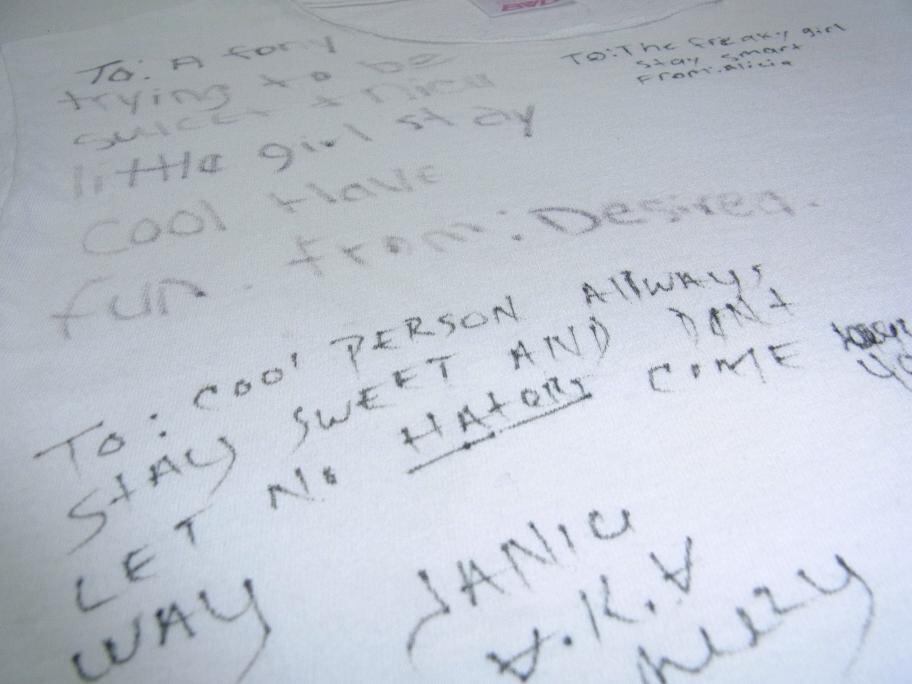 To: A fony
trying to be
sweet + nice
little girl stay
cool Have
fun. from: Desirea.
TO: The freaky girl
stay smart
From: Alicia
To: cool PERSON AllWAYS
STAY SWEET AND DONT
LET No HATORS COME
WAY
JANICE
A.K.A